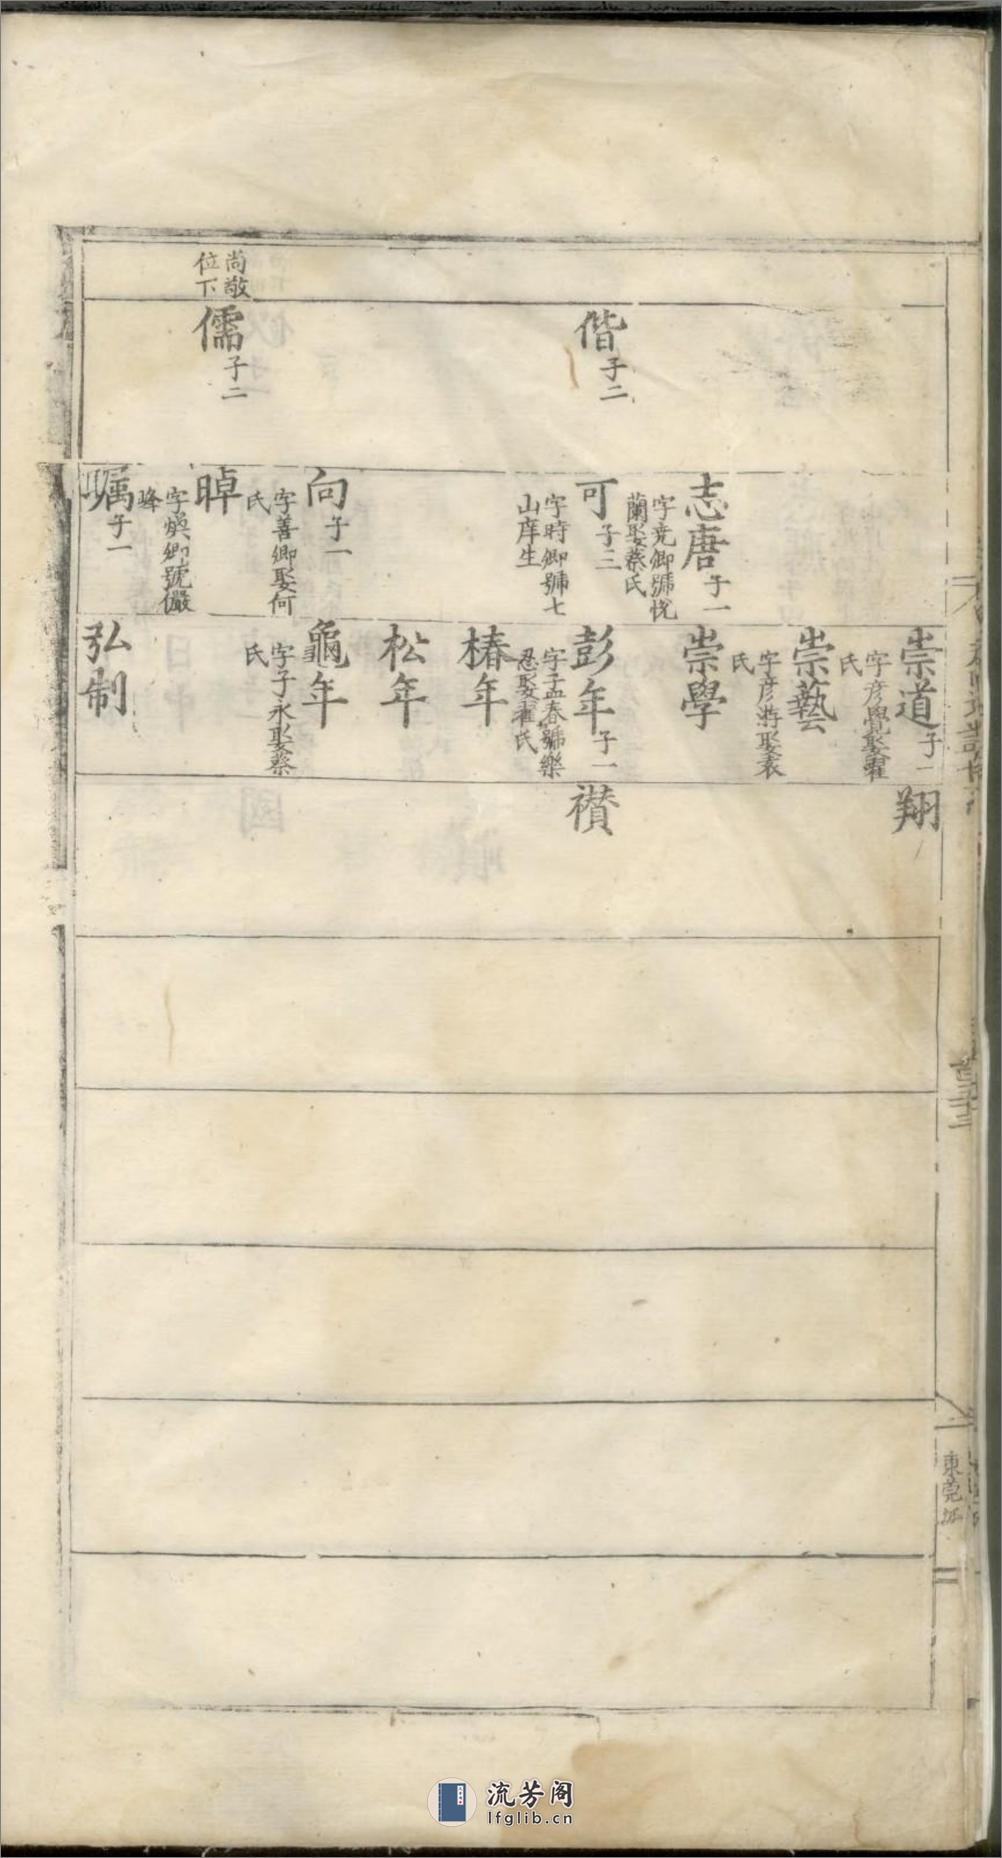 尚敬
位下
偕子二
儒子二
志唐子一
字堯卿號悅
蘭娶蔡氏
可子三
字時卿號七
山庠生
向子一
字善卿娶何
氏
晫
字煥卿號儼
峰
子一
崇道子一
字彥覺娶翟
氏
崇藝
字彥游娶袁
氏
崇學
彭年子一
字子孟春號樂
忍娶翟氏
椿年
松年
龜年
字子永娶蔡
氏
弘制
翔
襸
東莞
流芳阁
lfglib.cn